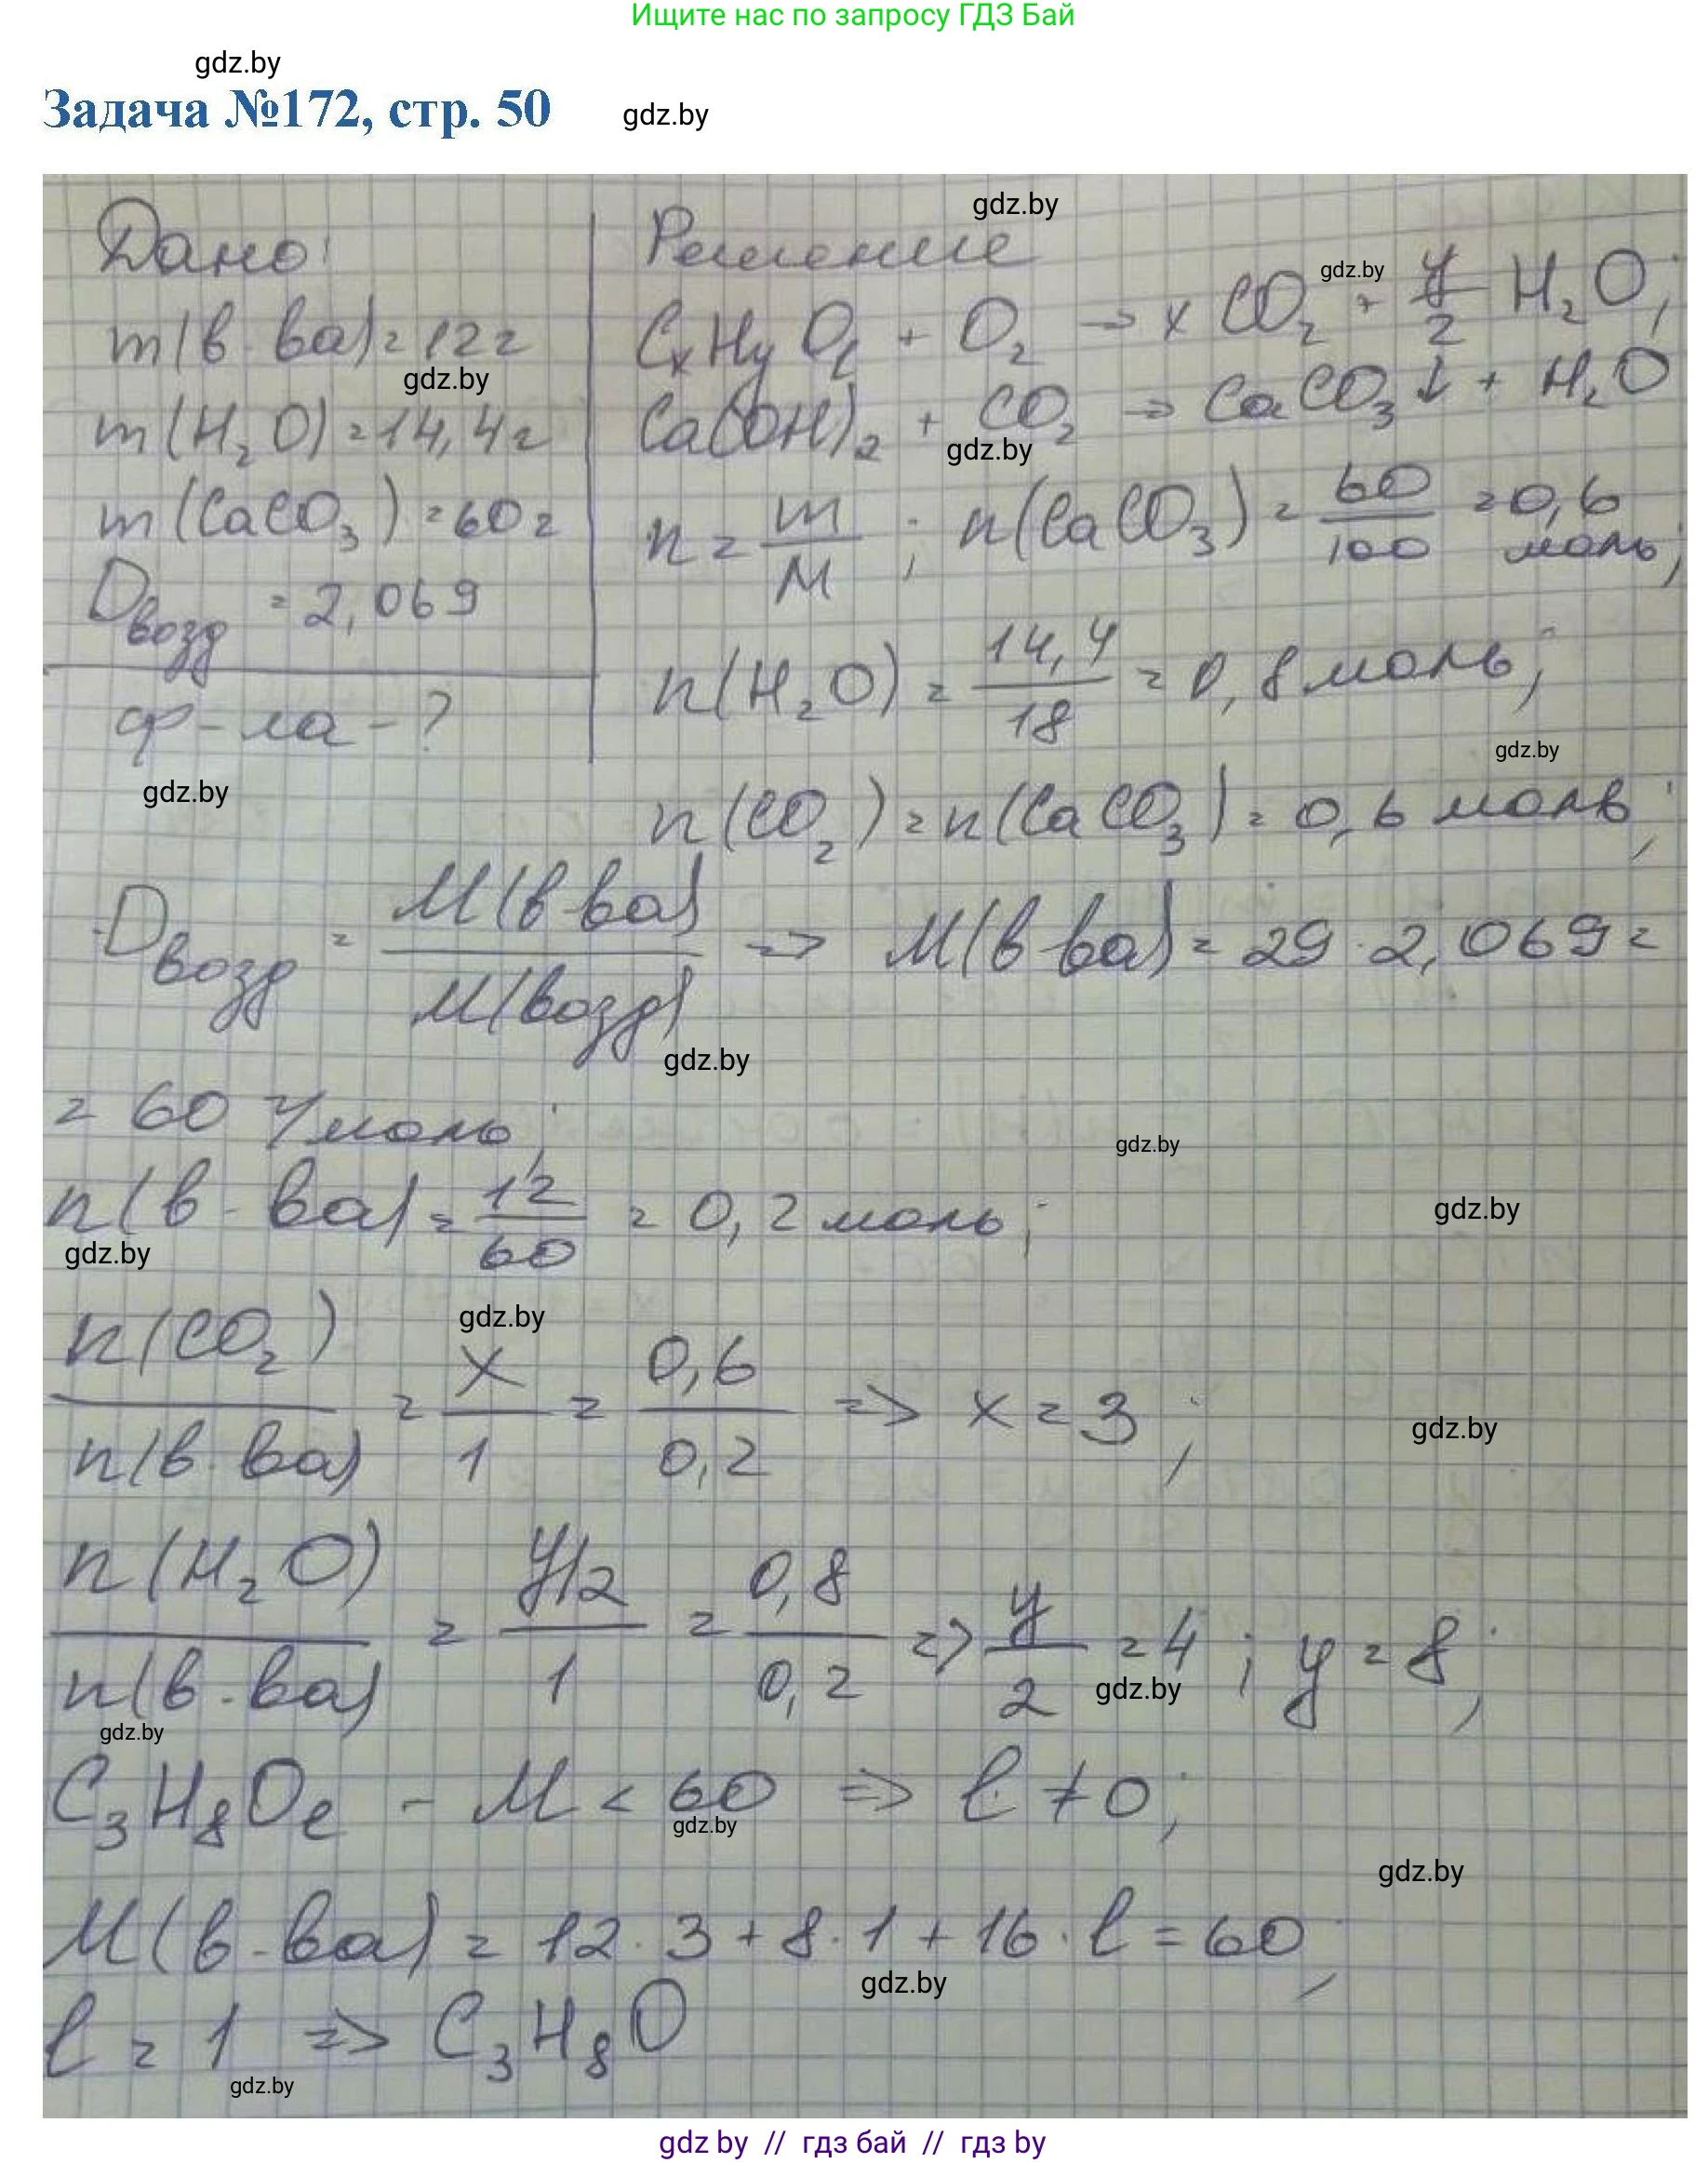 Ищите нас по запросу ГДЗ Бай
gdz.by
Задача №172, стр. 50
gdz.by
gdz.by
Дано:
m(в-ва)=12г
gdz.by
m(H₂O)=14,4г
m(CaCO₃)=60г
Dвозд = 2,069
ф-ла-?
gdz.by
Решение
gdz.by
CxHyOl + O₂ → xCO₂ + y/2 H₂O;
Ca(OH)₂ + CO₂ → CaCO₃↓ + H₂O
gdz.by
n = m/M ; n(CaCO₃) = 60/100 = 0,6 моль;
n(H₂O) = 14,4/18 = 0,8 моль;
gdz.by
n(CO₂) = n(CaCO₃) = 0,6 моль;
Dвозд = M(в-ва)/M(возд) => M(в-ва) = 29·2,069=
gdz.by
= 60 г/моль;
gdz.by
n(в-ва) = 12/60 = 0,2 моль;
gdz.by
gdz.by
gdz.by
n(CO₂)/n(в-ва) = x/1 = 0,6/0,2 => x = 3;
gdz.by
n(H₂O)/n(в-ва) = y/2/1 = 0,8/0,2 => y/2 = 4; y = 8;
gdz.by
gdz.by
C₃H₈Ol - M < 60 => l ≠ 0;
gdz.by
gdz.by
M(в-ва) = 12·3 + 8·1 + 16·l = 60;
gdz.by
l = 1 => C₃H₈O
gdz.by
gdz by // гдз бай // гдз by